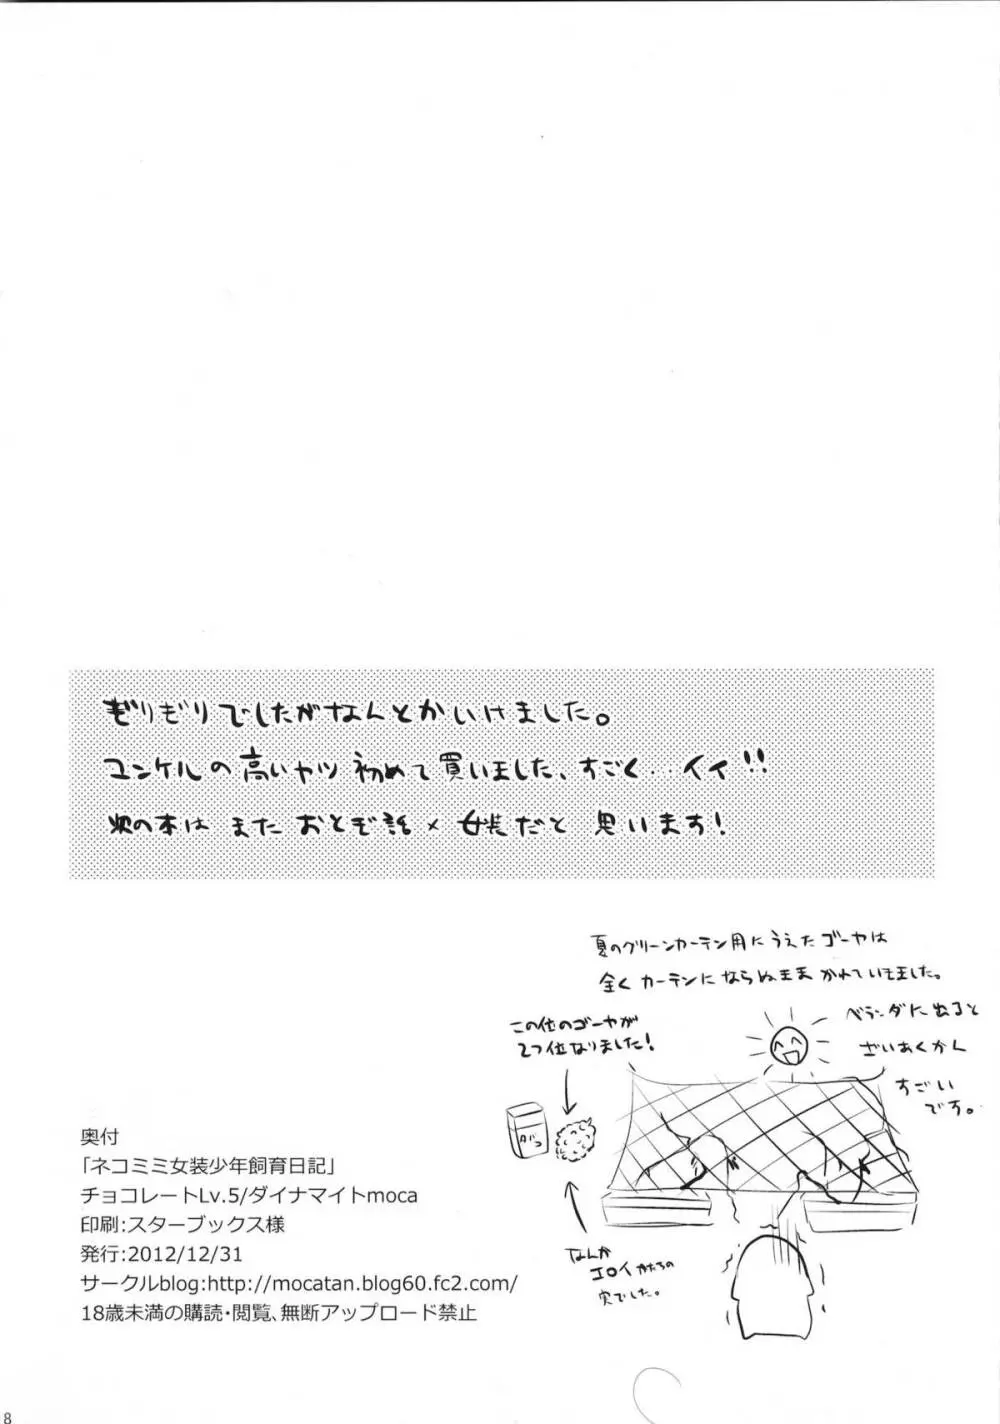 ぎりぎりでしたがなんとかいけました。
ユンケルの高いヤツ 初めて買いました、すごく…イイ!!
次の本は また おとぎ話×女装だと 思います!
夏のグリーンカーテン用に うえた ゴーヤは
全く カーテンに ならぬまま かれていきました。
ベランダに出ると
ざいあくかん
すごい
です。
この位のゴーヤが
2つ位なりました!
タバコ
なんか
エロイ かたちの
実でした。
奥付
「ネコミミ女装少年飼育日記」
チョコレートLv.5/ダイナマイトmoca
印刷:スターブックス様
発行:2012/12/31
サークルblog:http://mocatan.blog60.fc2.com/
18歳未満の購読・閲覧、無断アップロード禁止
8